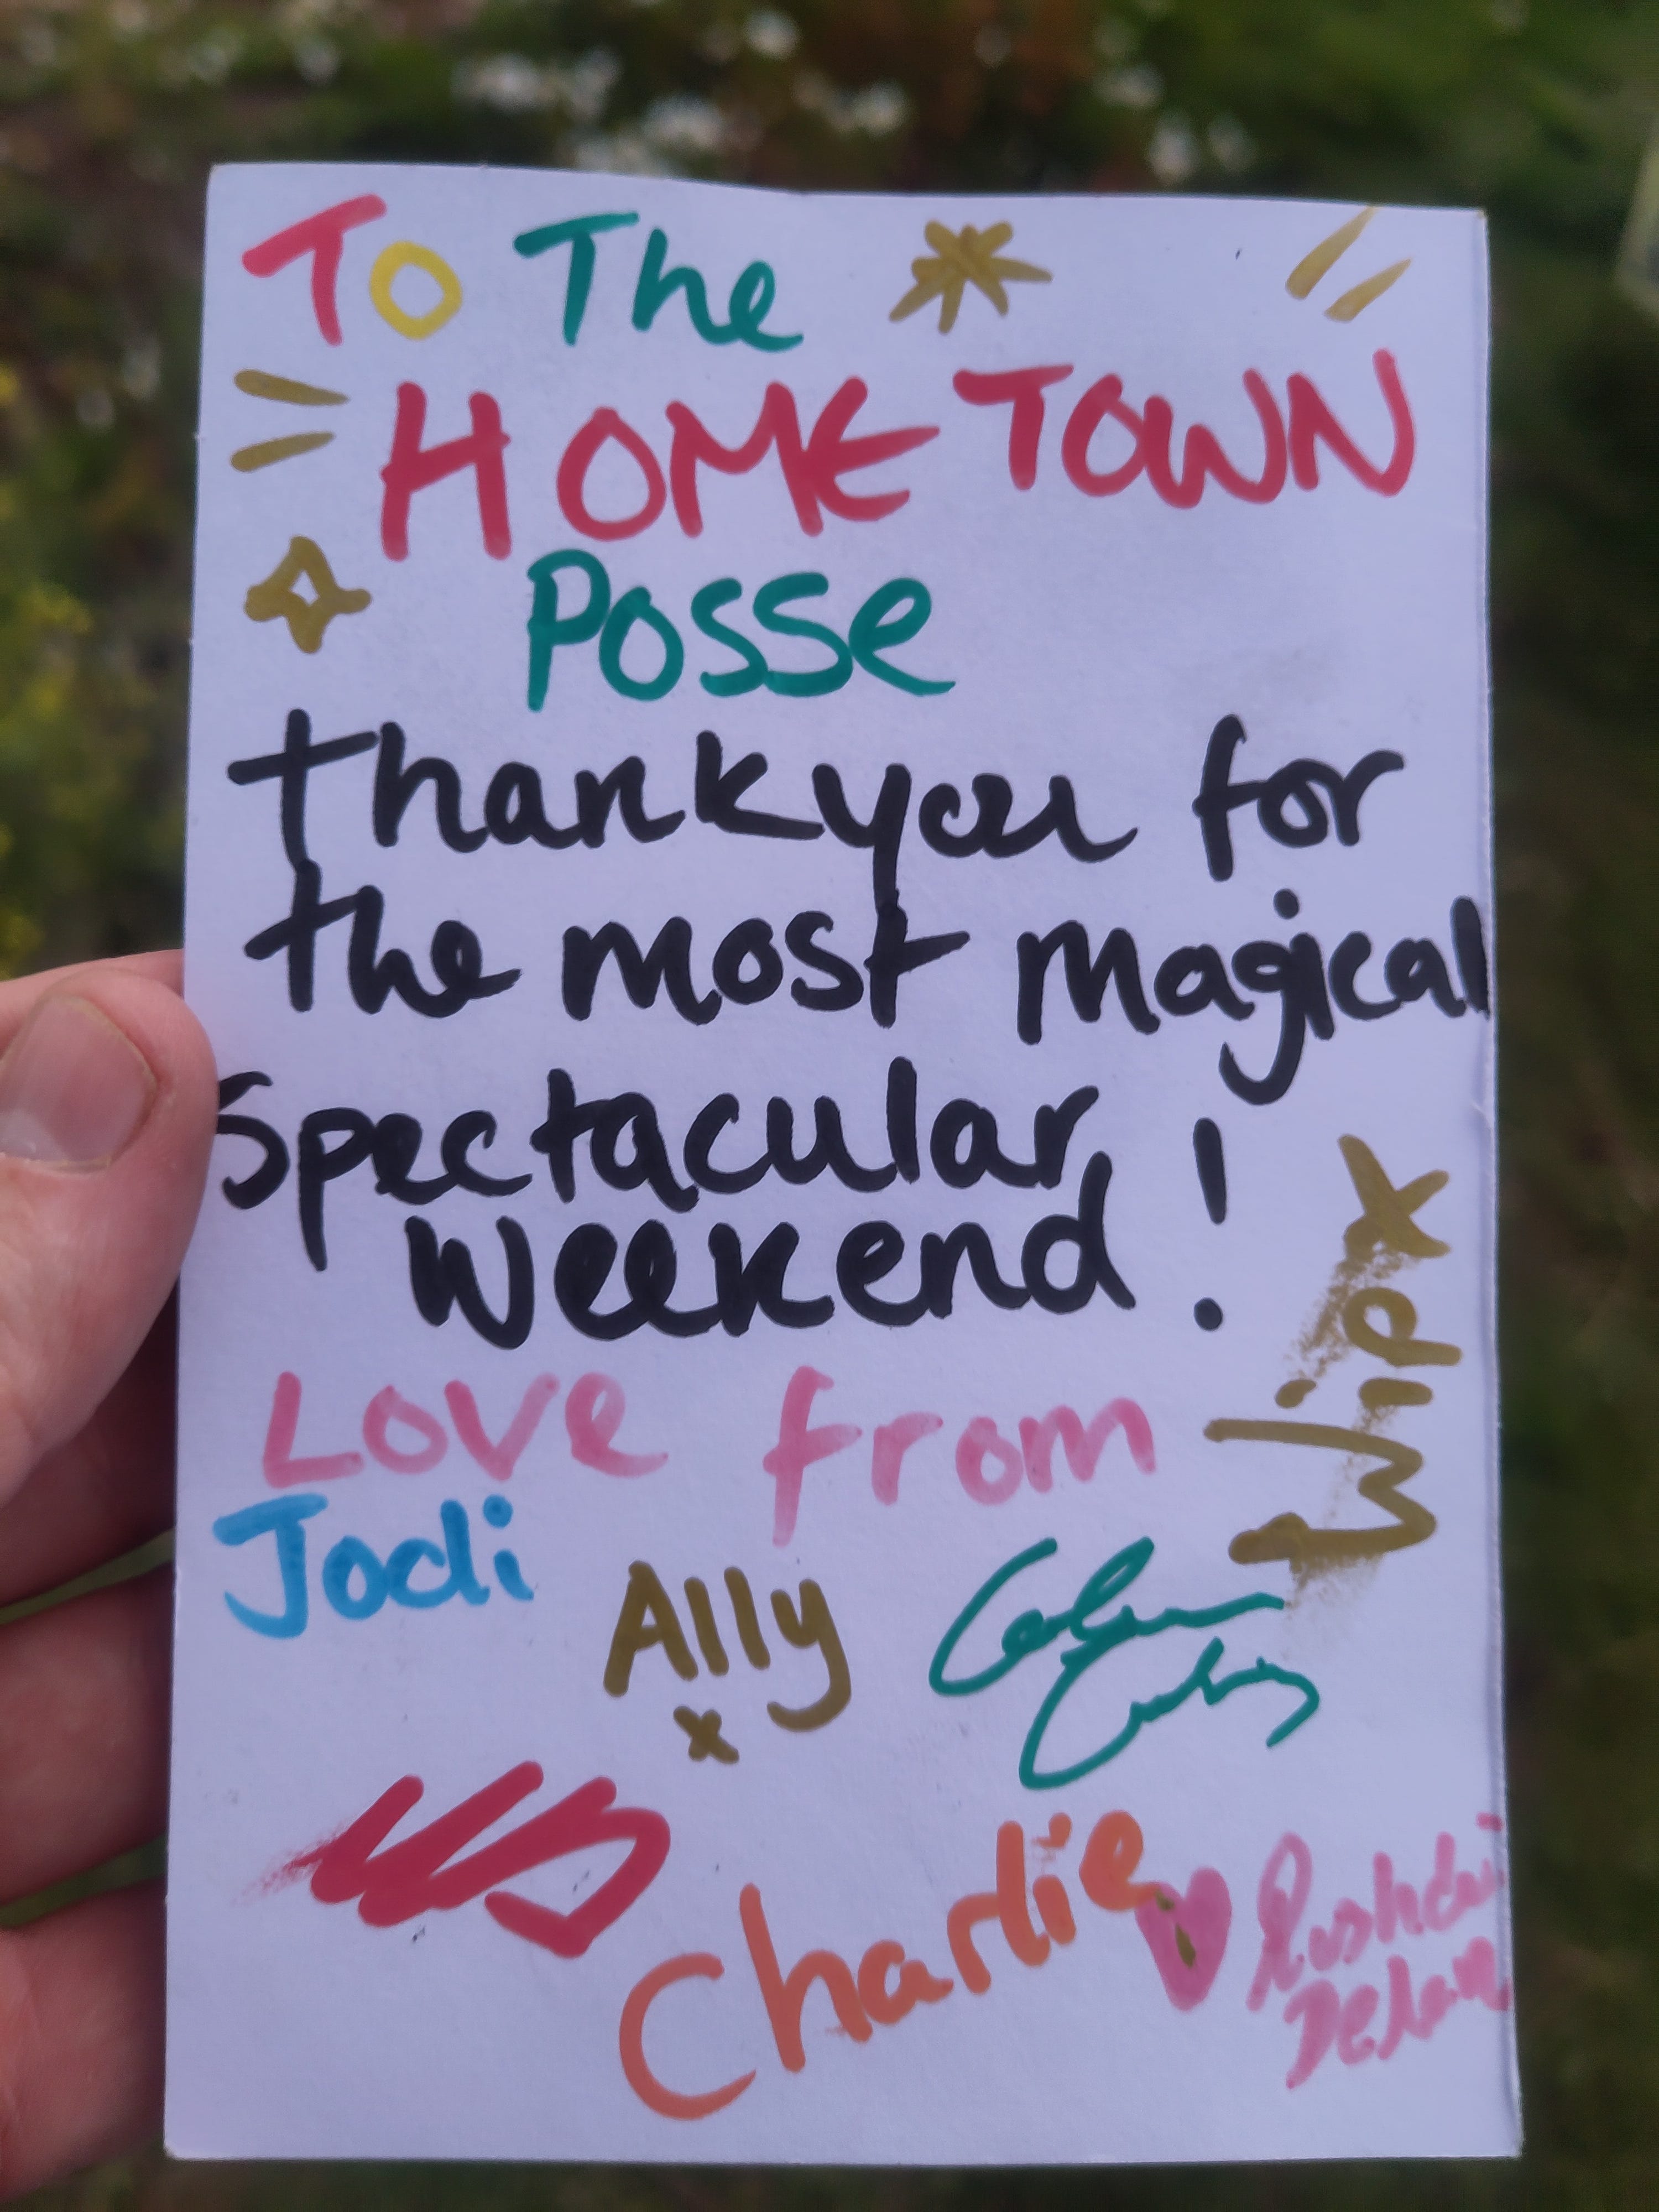 To The
HOME TOWN
Posse
Thankyou for
the most magical
Spectacular
weekend!
Love from
Jodi
Ally
x
Charlie